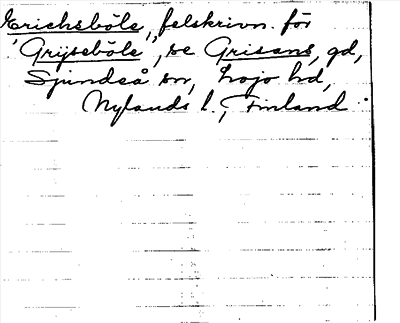 Erichsböle, felskrivn. för
'Grijseböle', se Grisans, gd,
Sjundeå sn, Lojo hd,
Nylands l., Finland.